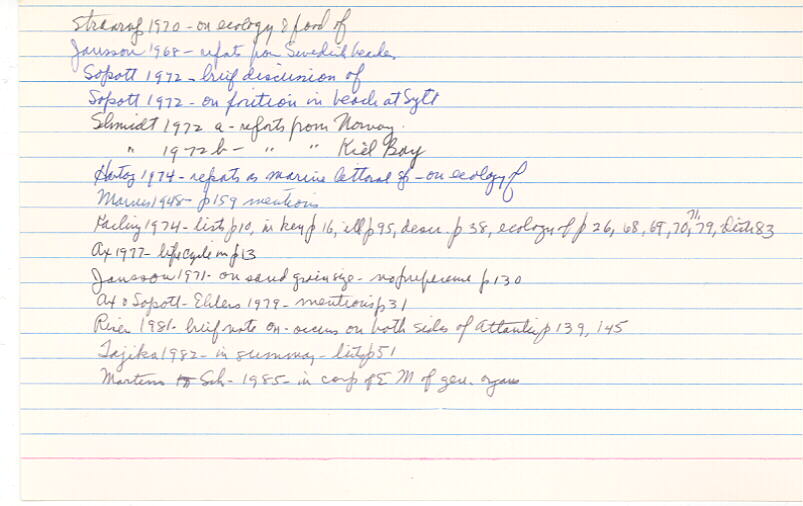 Straarup 1970 - on ecology & food of
Jansson 1968 - repts from Swedish beaches
Sopott 1972 - brief discussion of
Sopott 1972 - on position in beach at Sylt
Schmidt 1972 a - reports from Norway.
" 1972 b - " " Kiel Bay
Hartog 1974 - repats as marine littoral sp - on ecology of
Marcus 1948 - p 159 mentions
Karling 1974 - lists p10, in key p 16, ill p 95, descr. p 38, ecology of p 26, 68, 69, 70, 71, 79, Distr 83
Ax 1977 - life cycle in p 13
Jansson 1971 - on sand grain size - no preference p 130
Ax & Sopott-Ehlers 1979 - mentions p 31
Riser 1981 - brief note on - occurs on both sides of Atlantic p 139, 145
Tajika 1982 - in summary - list p 51
Martens & Sch - 1985 - in comp of E M of gen. organs